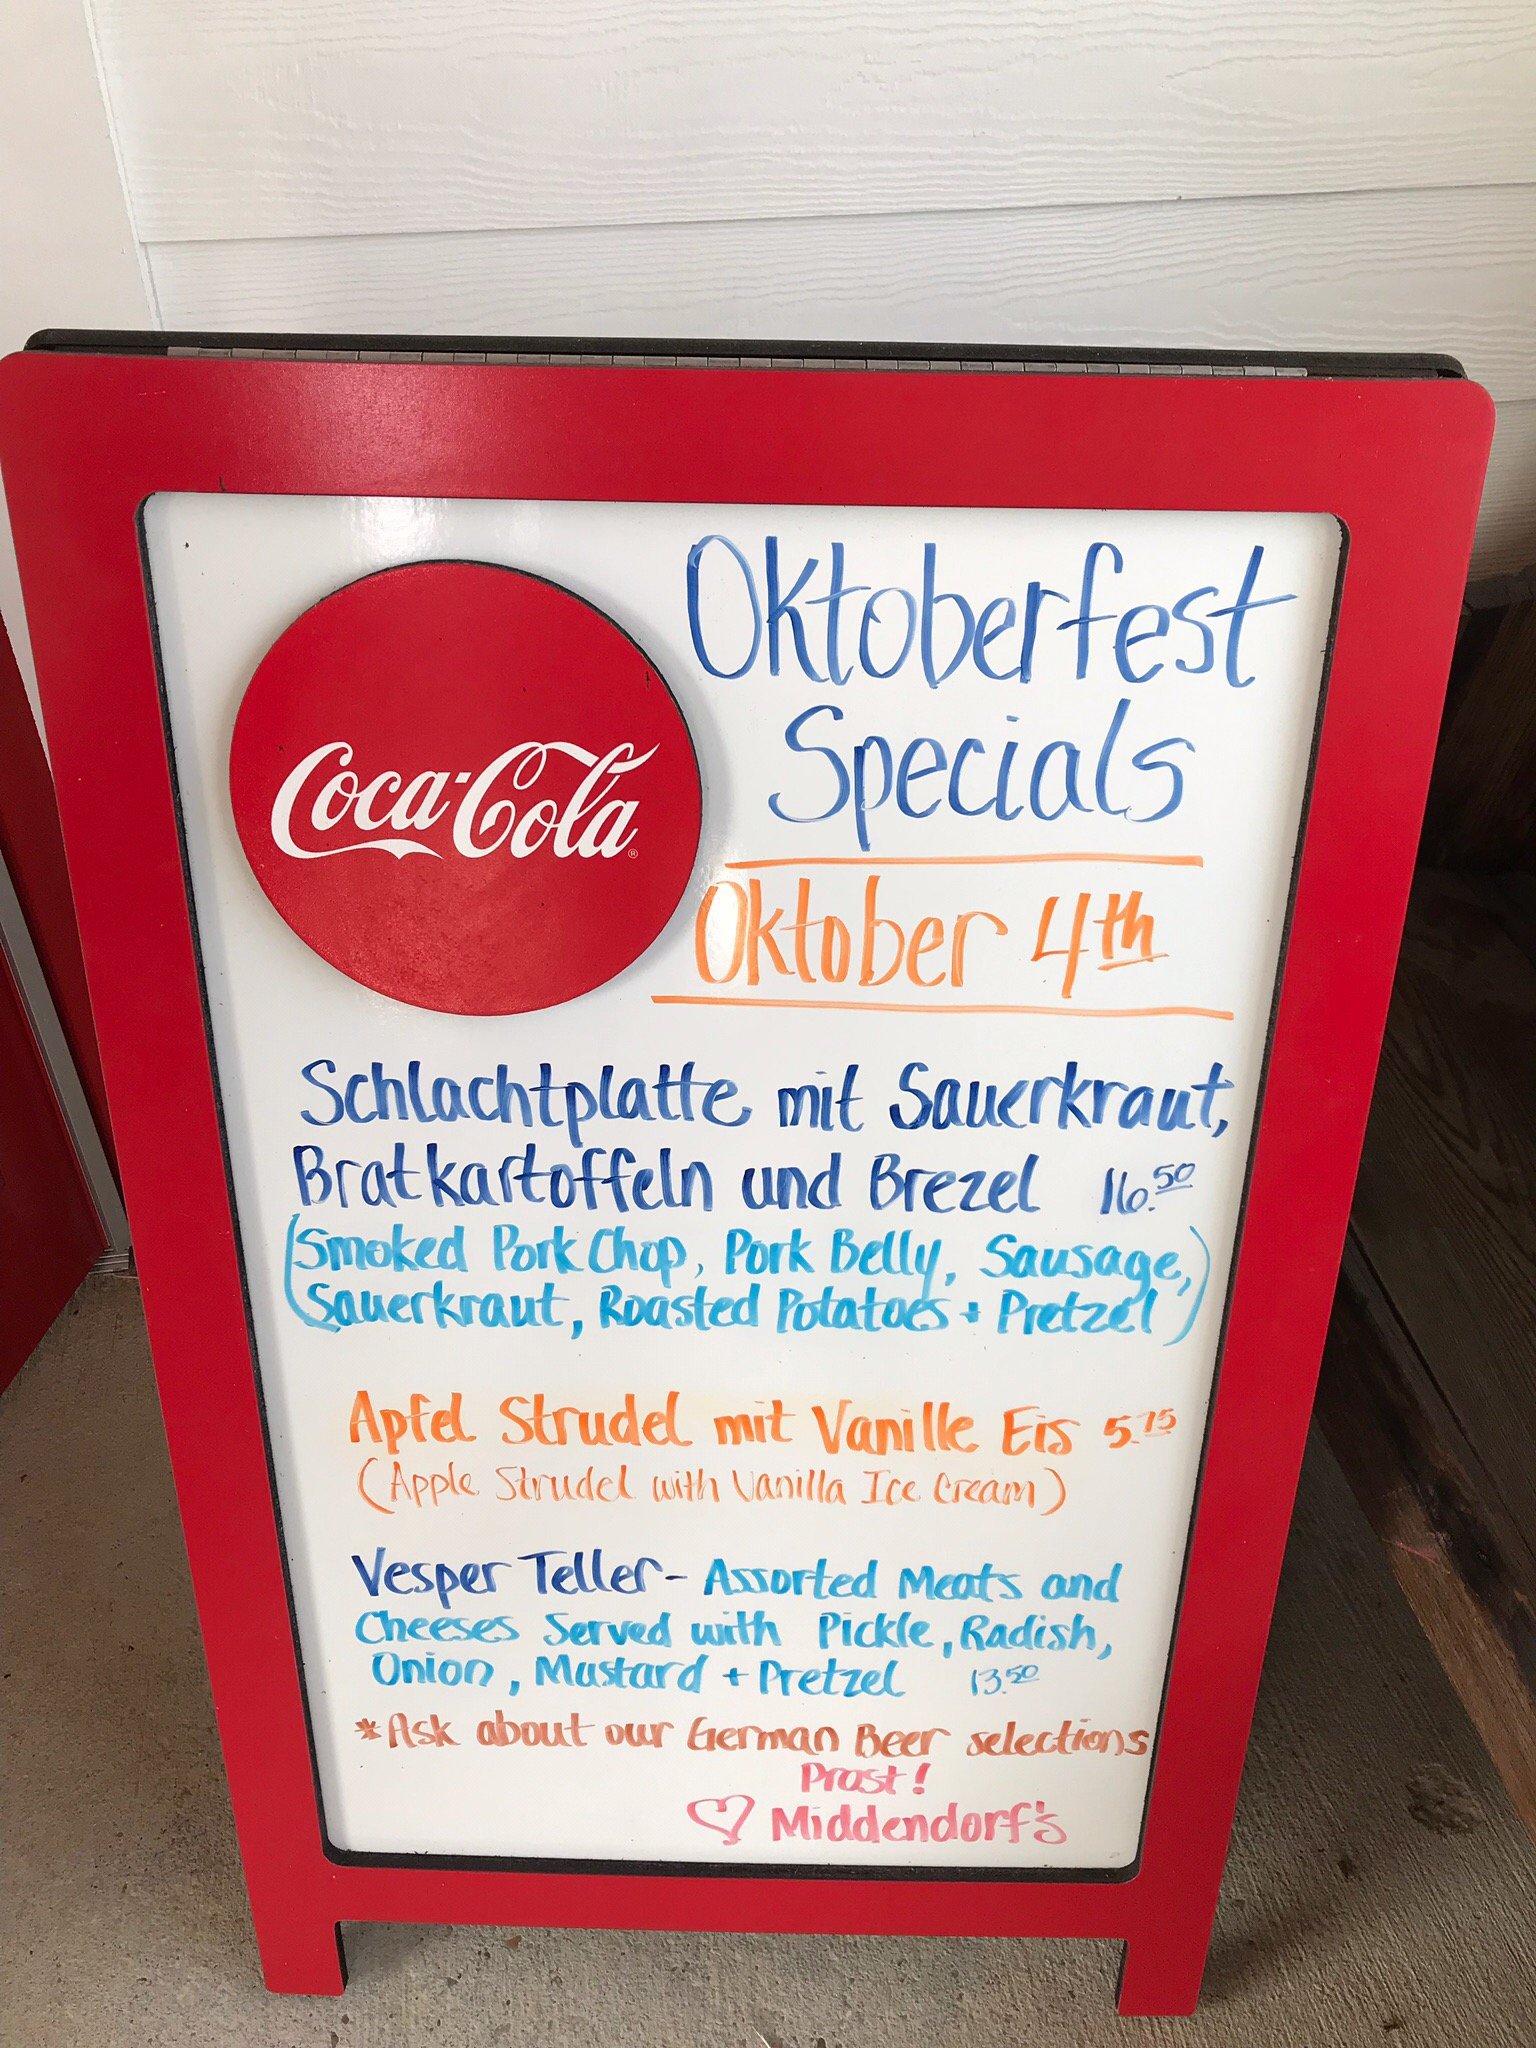 Coca-Cola®
Oktoberfest
Specials
Oktober 4th
Schlachtplatte mit Sauerkraut,
Bratkartoffeln und Brezel 16.50
(Smoked Pork Chop, Pork Belly, Sausage,
Sauerkraut, Roasted Potatoes + Pretzel)
Apfel Strudel mit Vanille Eis 5.75
(Apple Strudel with Vanilla Ice Cream)
Vesper Teller - Assorted Meats and
Cheeses Served with Pickle, Radish,
Onion, Mustard + Pretzel 13.50
*Ask about our German Beer selections
Prost!
♡ Middendorf's